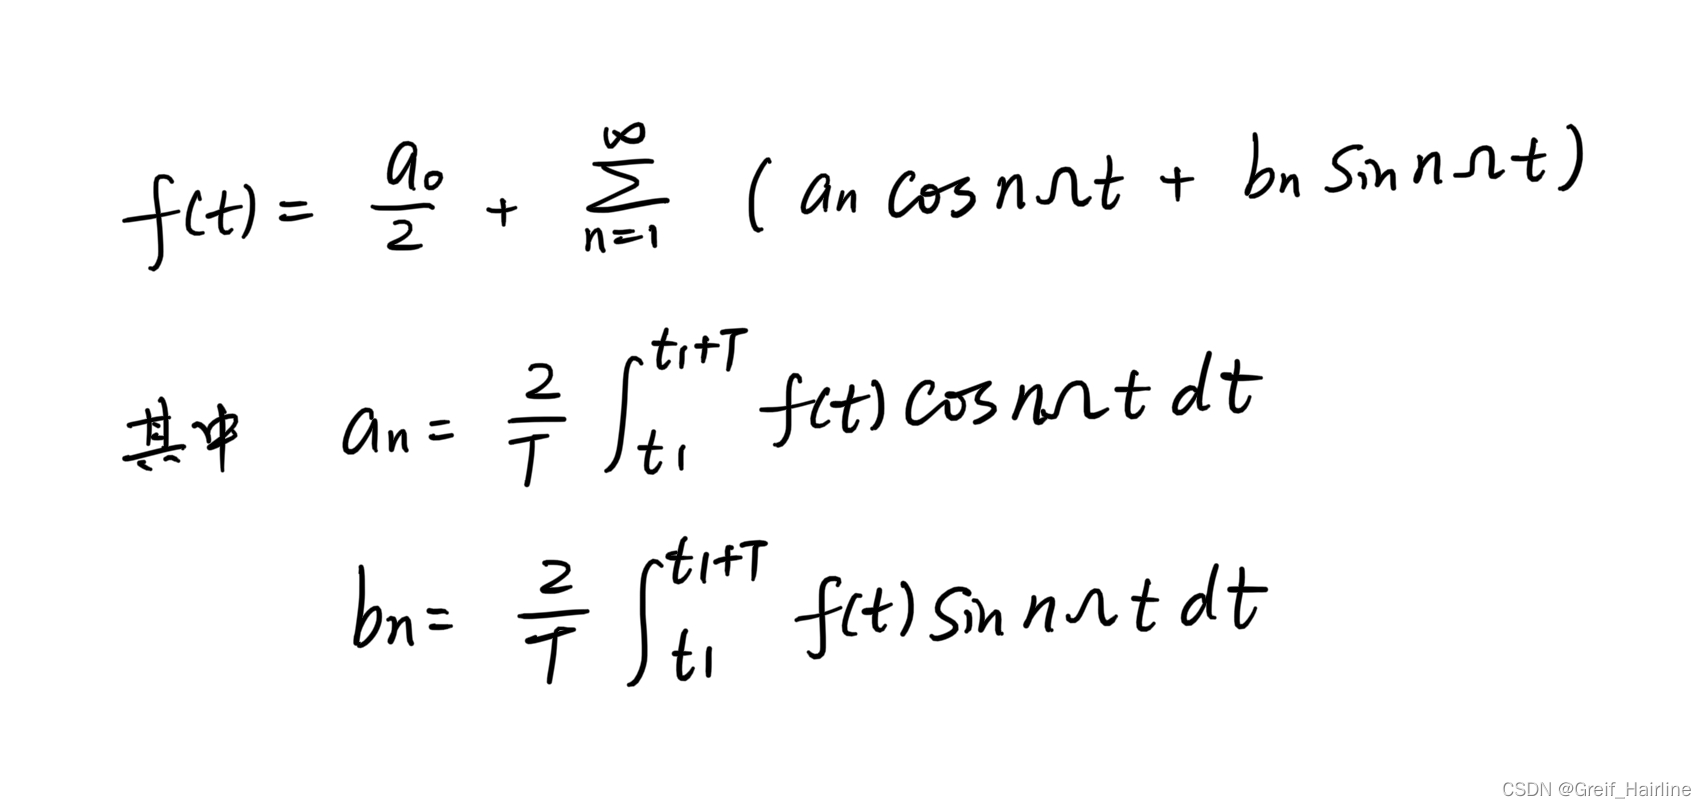 f(t) = a₀/2 + ∑_{n=1}^{∞} (aₙ cos nΩt + bₙ sin nΩt)
其中 aₙ = 2/T ∫_{t₁}^{t₁+T} f(t) cos nΩt dt
bₙ = 2/T ∫_{t₁}^{t₁+T} f(t) sin nΩt dt
CSDN @Greif_Hairline